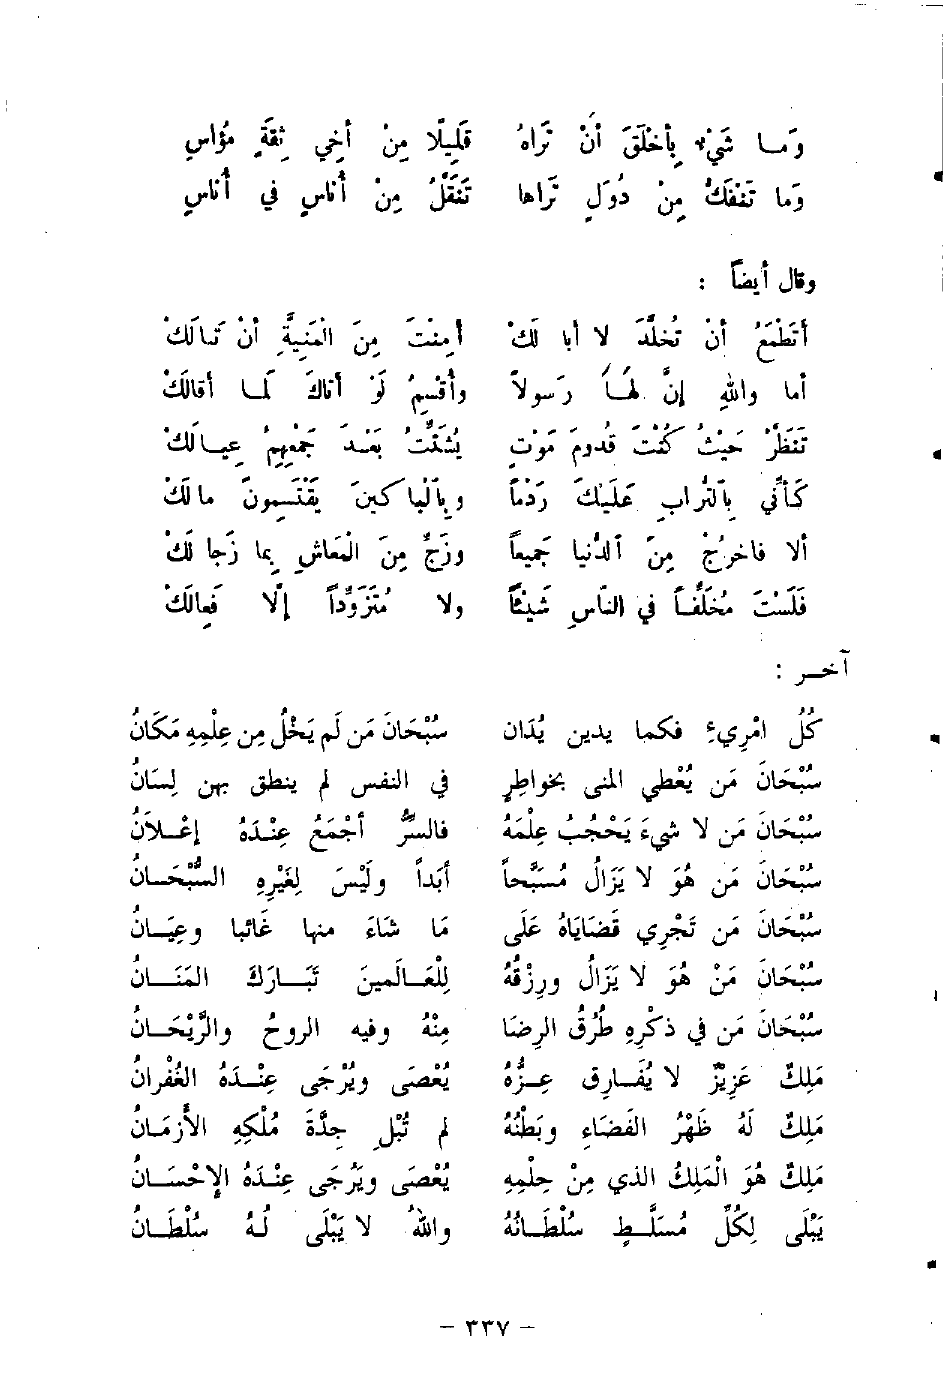 وَمـا شَيْءٌ بِأَخْلَقَ أَنْ تَراهُ قَلِيلًا مِنْ أخِي ثِقَةٍ مُؤاسِ
وَما تَنْفَكُّ مِنْ دُوَلٍ تَراها تَنَقَّلُ مِنْ أُناسٍ في أُناسِ
وقال أيضاً :
أَتَطْمَعُ أَنْ تُخَلَّدَ لا أبا لَكْ أمِنْتَ مِنَ الْمَنِيَّةِ أنْ تَنالَكْ
أما واللهِ إنَّ لَهَـا رَسولاً وأُقْسِمُ لَوْ أتاكَ لَمـا أقالَكْ
تَنَظَّرْ حَيْثُ كُنْتَ قُدومَ مَوْتٍ يُشَتِّتُ بَعْـدَ جَمْعِهِمُ عِيـالَكْ
كَأَنِّي بِٱلتُّرابِ عَلَيْكَ رَدْماً وبِٱلْباكينَ يَقْتَسِمُونَ مالَكْ
ألا فاخرُجْ مِنَ ٱلدُّنيا جَميعاً وزَجِّ مِنَ الْمَعَاشِ بِما زَجا لَكْ
فَلَسْتَ مُخَلِّفـاً في النّاسِ شَيْئاً ولا مُتَزَوِّداً إلّا فَعالَكْ
آخـر :
كُلُّ امْرِيءٍ فكما يدين يُدَان سُبْحَانَ مَن لَم يَخْلُ مِن عِلْمِهِ مَكَانُ
سُبْحَانَ مَن يُعْطِي المنى بخواطِرٍ في النفس لم ينطق بهن لِسَانُ
سُبْحَانَ مَن لا شيءَ يَحْجُبُ عِلْمَهُ فالسِّرُّ أجْمَعُ عِنْـدَهُ إعْـلاَنُ
سُبْحَانَ مَن هُوَ لا يَزَالُ مُسَبَّحاً أبَداً ولَيْسَ لِغَيْرِهِ السُّبْحَـانُ
سُبْحَانَ مَن تَجْرِي قَضَايَاهُ عَلَى مَا شَاءَ منها غَائبا وعِيَـانُ
سُبْحَانَ مَنْ هُوَ لا يَزَالُ ورِزْقُهُ لِلْعَـالَمينَ تَبَـارَكَ المَنَـانُ
سُبْحَانَ مَن في ذكْرِهِ طُرُقُ الرِضَا مِنْهُ وفيه الروحُ والرَّيْحَـانُ
مَلِكٌ عَزِيزٌ لا يُفَـارِق عِـزُّهُ يُعْصَى ويُرْجَى عِنْـدَهُ الغُفْرانُ
مَلِكٌ لَهُ ظَهْرُ الفَضَاءِ وبَطْنُهُ لم تُبْلِ جِدَّةَ مُلْكِهِ الأزمَـانُ
مَلِكٌ هُوَ الْمَلِكُ الذي مِنْ حِلْمِهِ يُعْصَى ويَرْجَى عِنْـدَهُ الإحْسَـانُ
يَبْلَى لِكُلِّ مُسَلَّـطٍ سُلْطَـانُهُ واللهُ لا يَبْلَى لَـهُ سُلْطَـانُ
– ٣٣٧ –